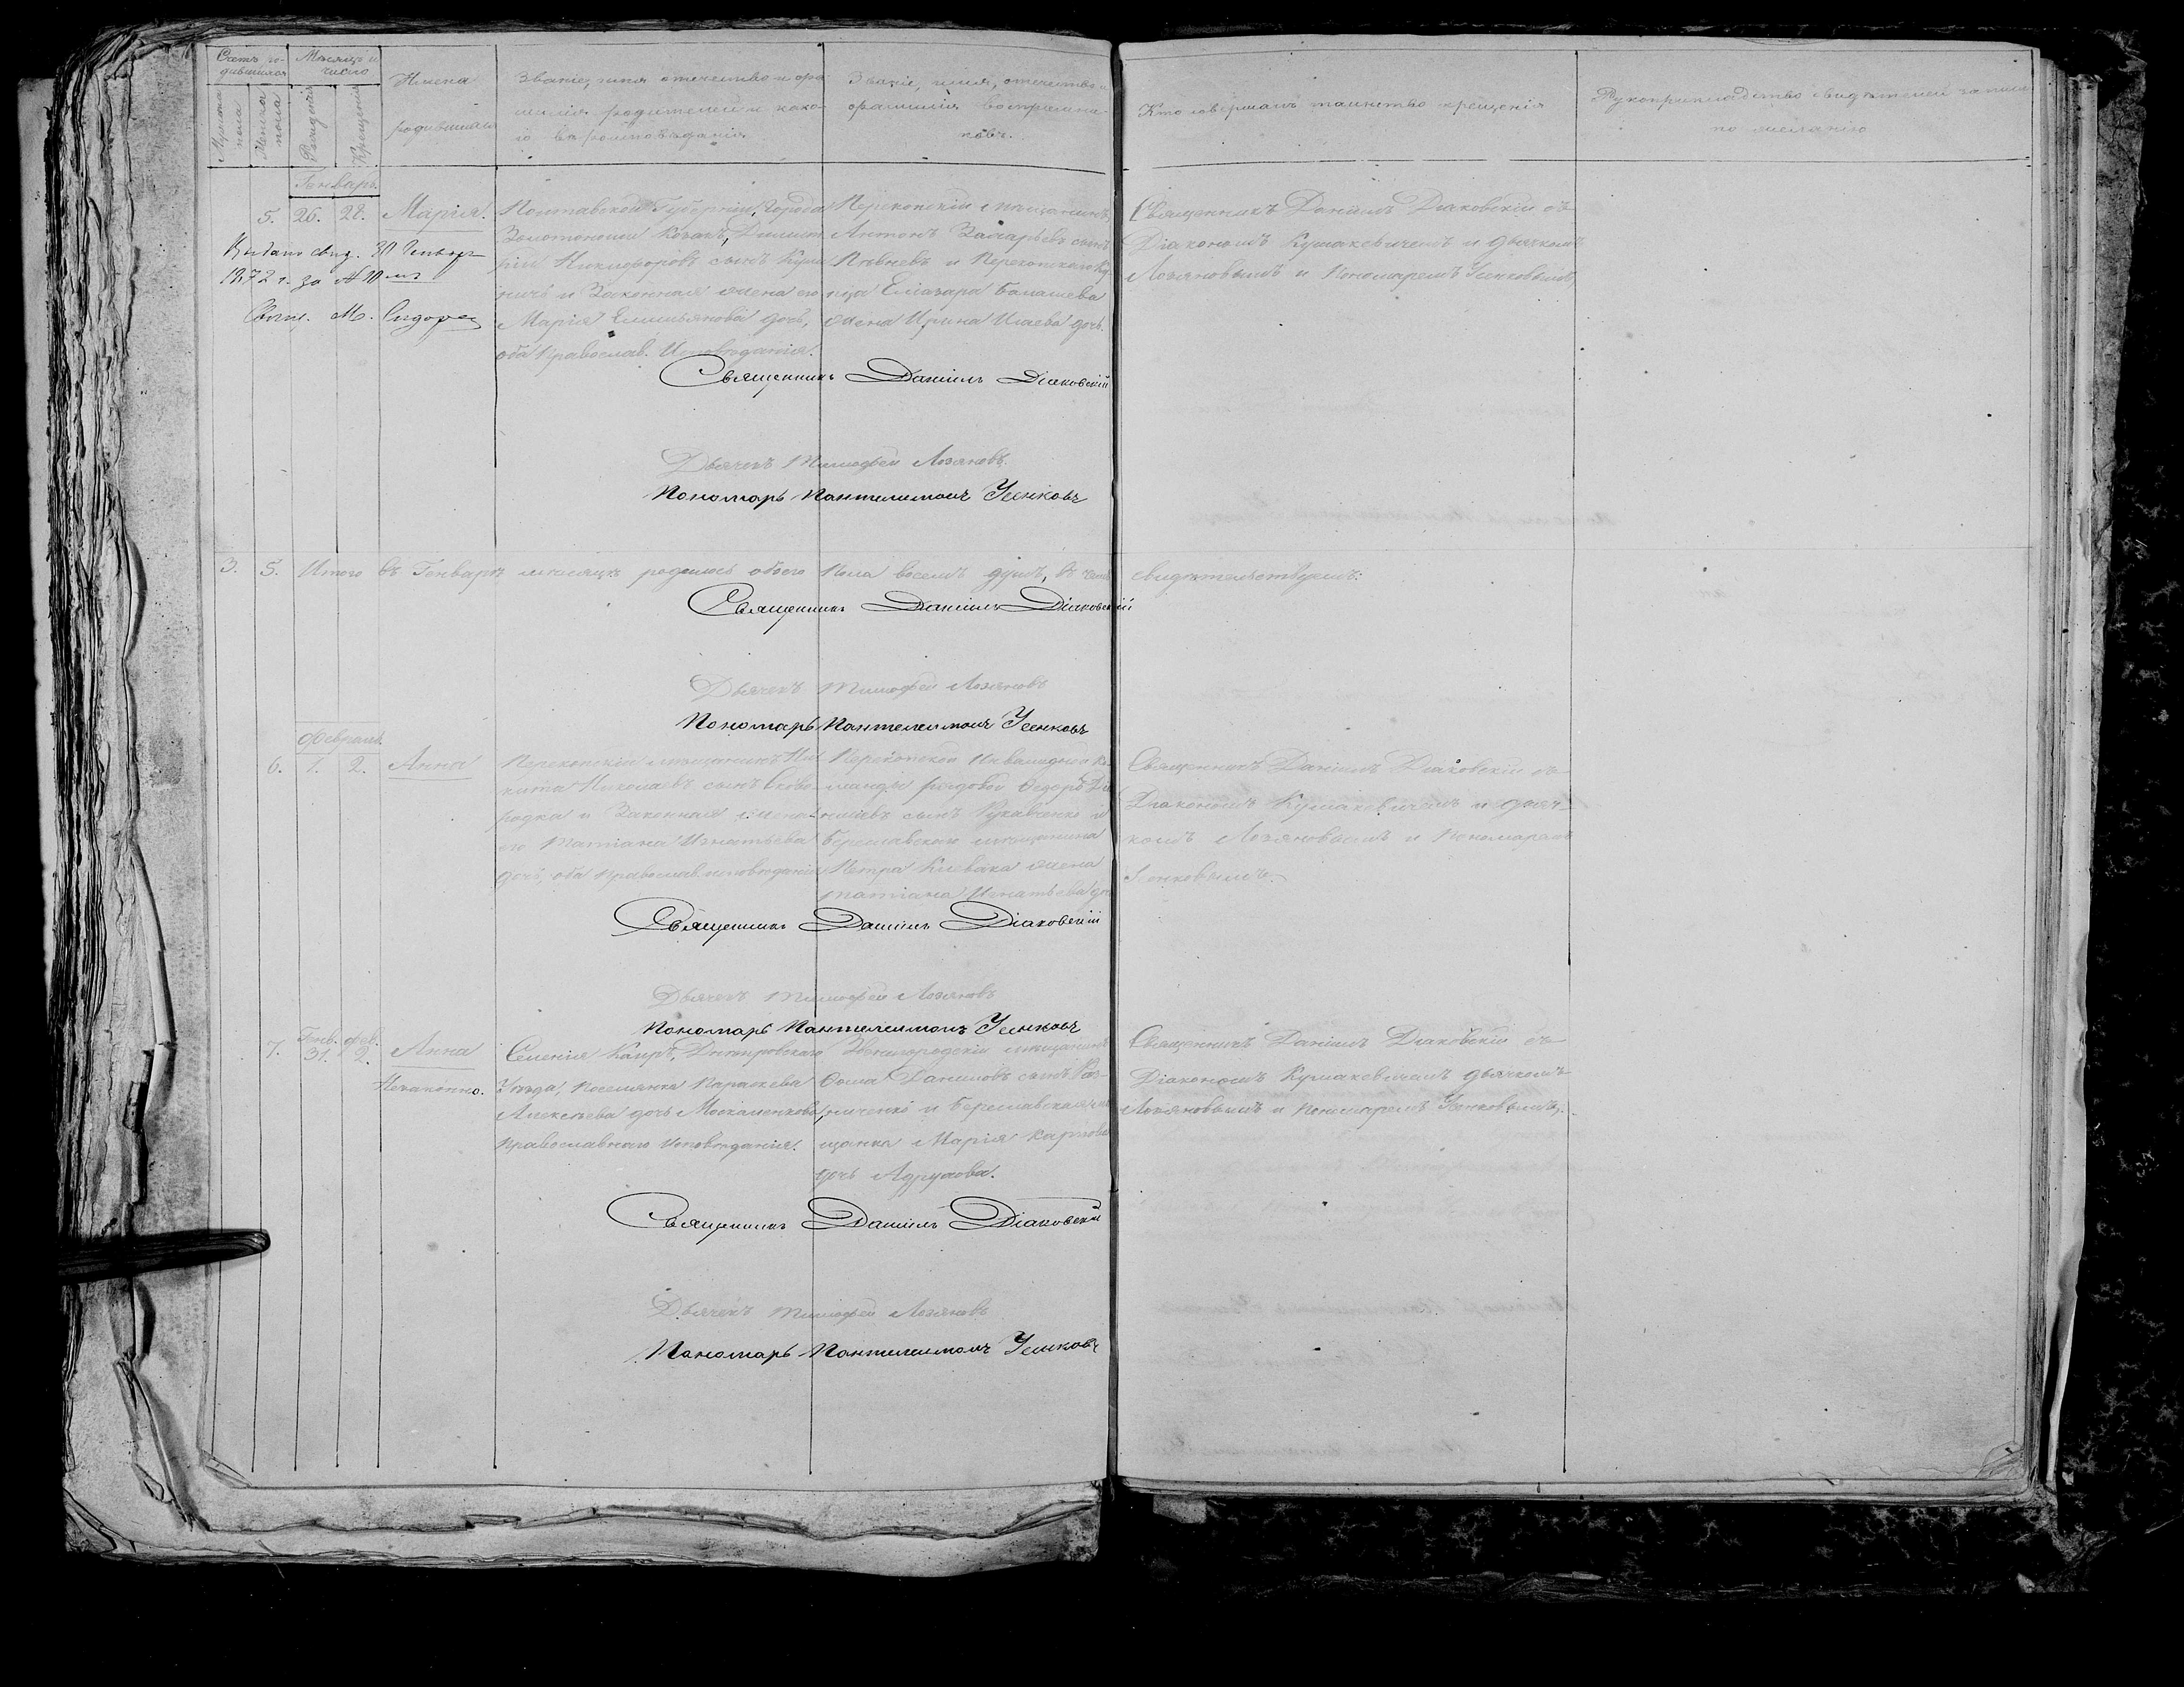 Счетъ родившихся
Мѣсяцъ и число
Имена родившихся
Званіе, имя отечество и фамилія родителей и какого вѣроисповѣданія
Званіе, имя, отечество и фамилія воспріемниковъ.
Кто совершалъ таинство крещенія
Рукоприкладство свидѣтелей записи по желанію
Мужска пола
Женска пола
Рожденія
Крещенія
Генварь
5. 26. 28. Марія.
Полтавской Губерніи, Города
Золотоноши Козакъ, Димит
рій Никифоровъ сынъ
и Законная жена его
Марія Емильянова дочь,
оба Православ. Исповѣданія.
Перекопскій мѣщанинъ
Антонъ Захарьевъ сынъ
Пѣвневъ и Перекопскаго Ку-
пца Елiазара Балашева
жена Ирина Исаева дочь.
Священникъ Даніилъ Діаковскій съ
Діакономъ Кушакевичемъ и дьячкомъ
Лозяновымъ и Пономаремъ Усенковымъ,
Выдано свид. 30 Генваря
1872 г. за № 10 мъ
Свящ. М. Сидоре
Священникъ Даніилъ Діаковскій
Дьячекъ Тимофей Лозяновъ.
Пономарь Пантелеимонъ Усенковъ
3. 5. Итого въ Генварѣ мѣсяцѣ родилось обоего Пола восемь душъ, въ чемъ свидѣтельствуемъ:
Священникъ Даніилъ Діаковскій
Дьячекъ Тимофей Лозяновъ
Пономарь Пантелеимонъ Усенковъ
Февраль.
6. 1. 2. Анна
Перекопскій мѣщанинъ Ни
кита Николаевъ сынъ Сково
родка и Законная жена
его Татіана Игнатьева
дочь, оба Православ. исповѣданія
Перекопской Инвалидной Ко
манды рядовой Ѳедоръ
сынъ и
Бериславскаго мѣщанина
Петра жена
Татіана Игнатьева доч
Священникъ Даніилъ Діаковскій съ
Діакономъ Кушакевичемъ и дьяч-
комъ Лозяновымъ и Пономаремъ
Усенковымъ.
Священникъ Даніилъ Діаковскій
Дьячекъ Тимофей Лозяновъ
Пономарь Пантелеимонъ Усенковъ
Генв. Фев.
7. 31. 2. Анна
Незаконно.
Селенія Каиръ, Днѣпровскаго
Уѣзда, Поселянка Параскева
Алексѣева дочь Москаленкова,
Православнаго Исповѣданія.
Звенигородскій мѣщанинъ
Ѳома Даниловъ сынъ
и Бериславская мѣ
щанка Марія Карпова
дочь
Священникъ Даніилъ Діаковскій съ
Діакономъ Кушакевичемъ дьячкомъ
Лозяновымъ и Пономаремъ Усенковымъ.
Священникъ Даніилъ Діаковскій
Дьячекъ Тимофей Лозяновъ
Пономарь Пантелеимонъ Усенковъ